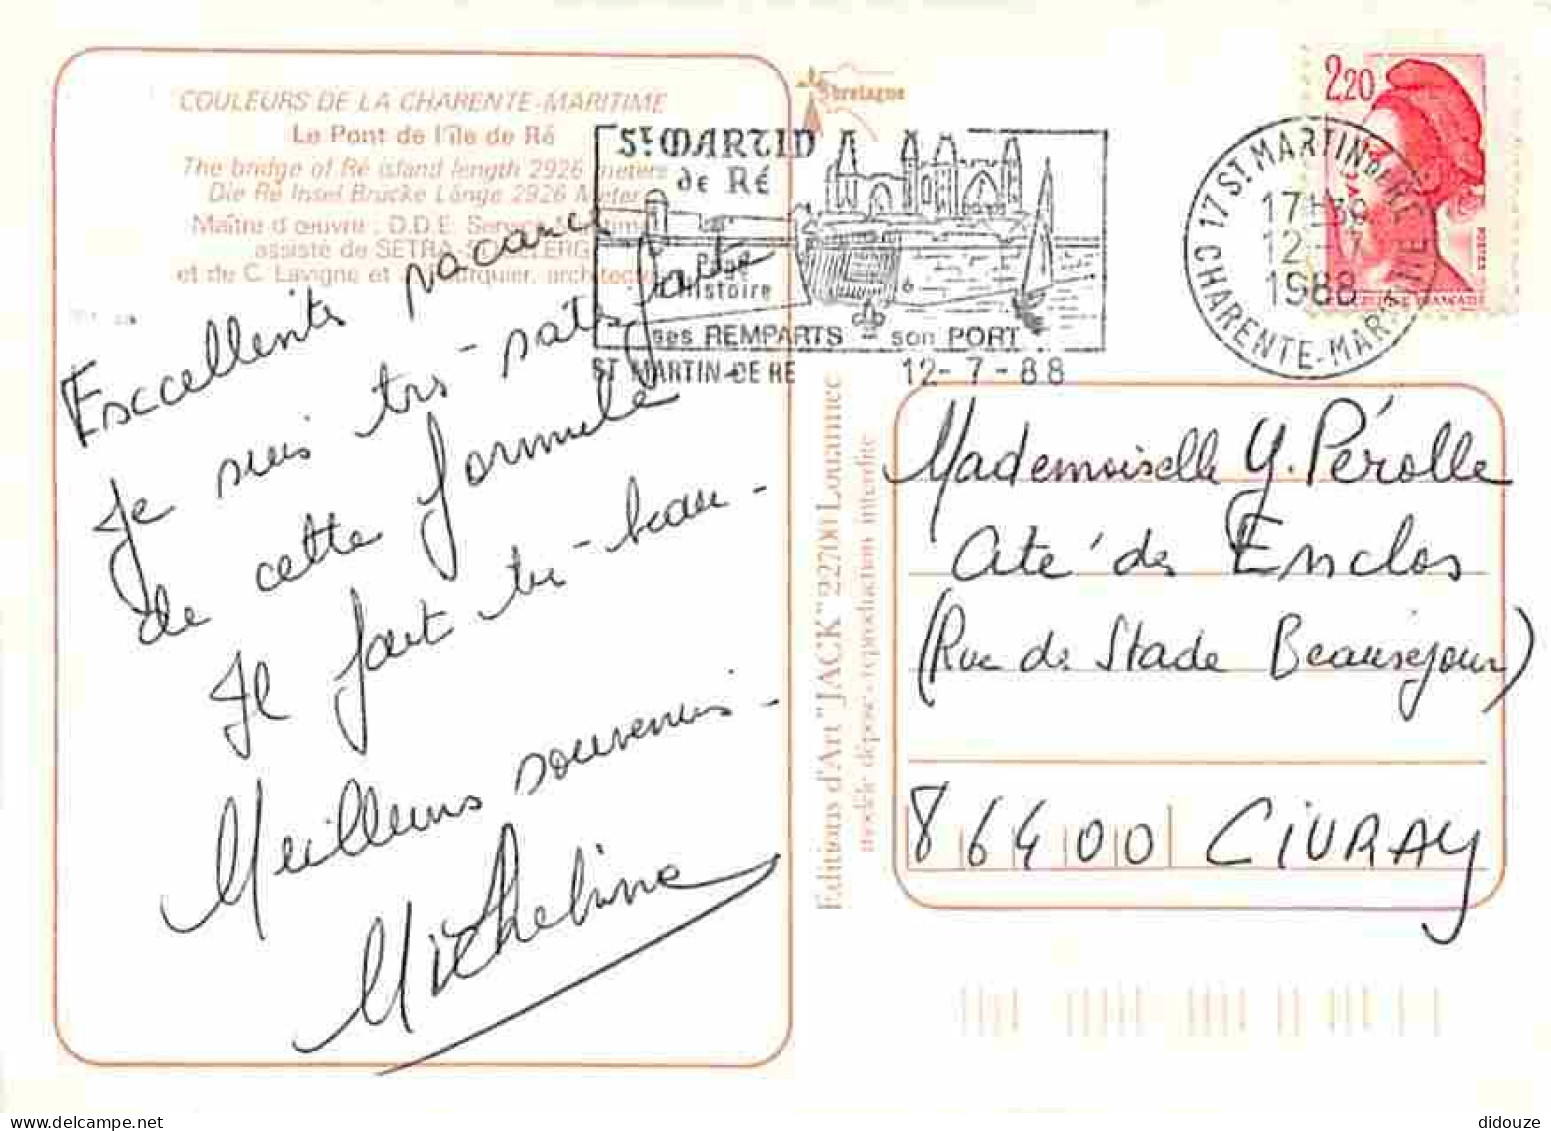 COULEURS DE LA CHARENTE-MARITIME
Le Pont de l'île de Ré
The bridge of Ré island length 2926 meters
Die Ré Insel Brücke Länge 2926 Meter
Maître d'œuvre : D.D.E.
assisté de SETRA
et de C. Lavigne et architectes
Excellentes vacances
Je suis très satisfaite
de cette formule
Il fait très beau -
Meilleurs souvenirs -
Micheline
bretagne
St MARTIN
de RÉ
Page
Histoire
ses REMPARTS son PORT
ST MARTIN-DE RE 12-7-88
2,20
17 ST MARTIN DE RE
17H30
12-7
1988
CHARENTE-MARITIME
POSTES
Editions d'Art "JACK" 22700 Louannec
modèle déposé - reproduction interdite
Mademoiselle Y. Pérolle
Cité des Enclos
(Rue du Stade Beauséjour)
86400 CIVRAY
didouze